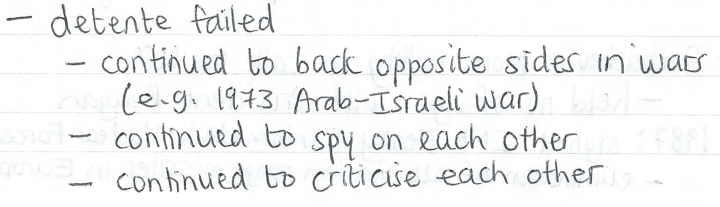 – detente failed
– continued to back opposite sides in wars
(e.g. 1973 Arab-Israeli war)
continued to spy on each other
– continued to criticise each other